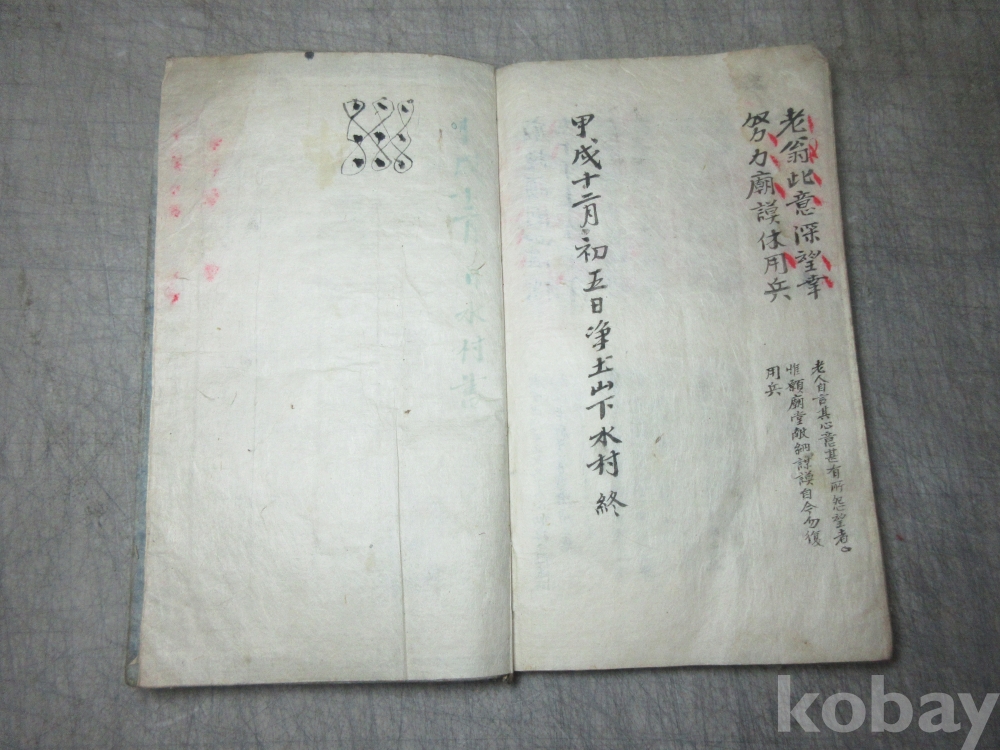 老翁此意深望幸
努力廟謨休用兵
老人自言其心意甚有所怨望者。
惟願廟堂敵納謀謨自今勿復
用兵
甲戌十二月初五日淨土山下水村 終
kobay